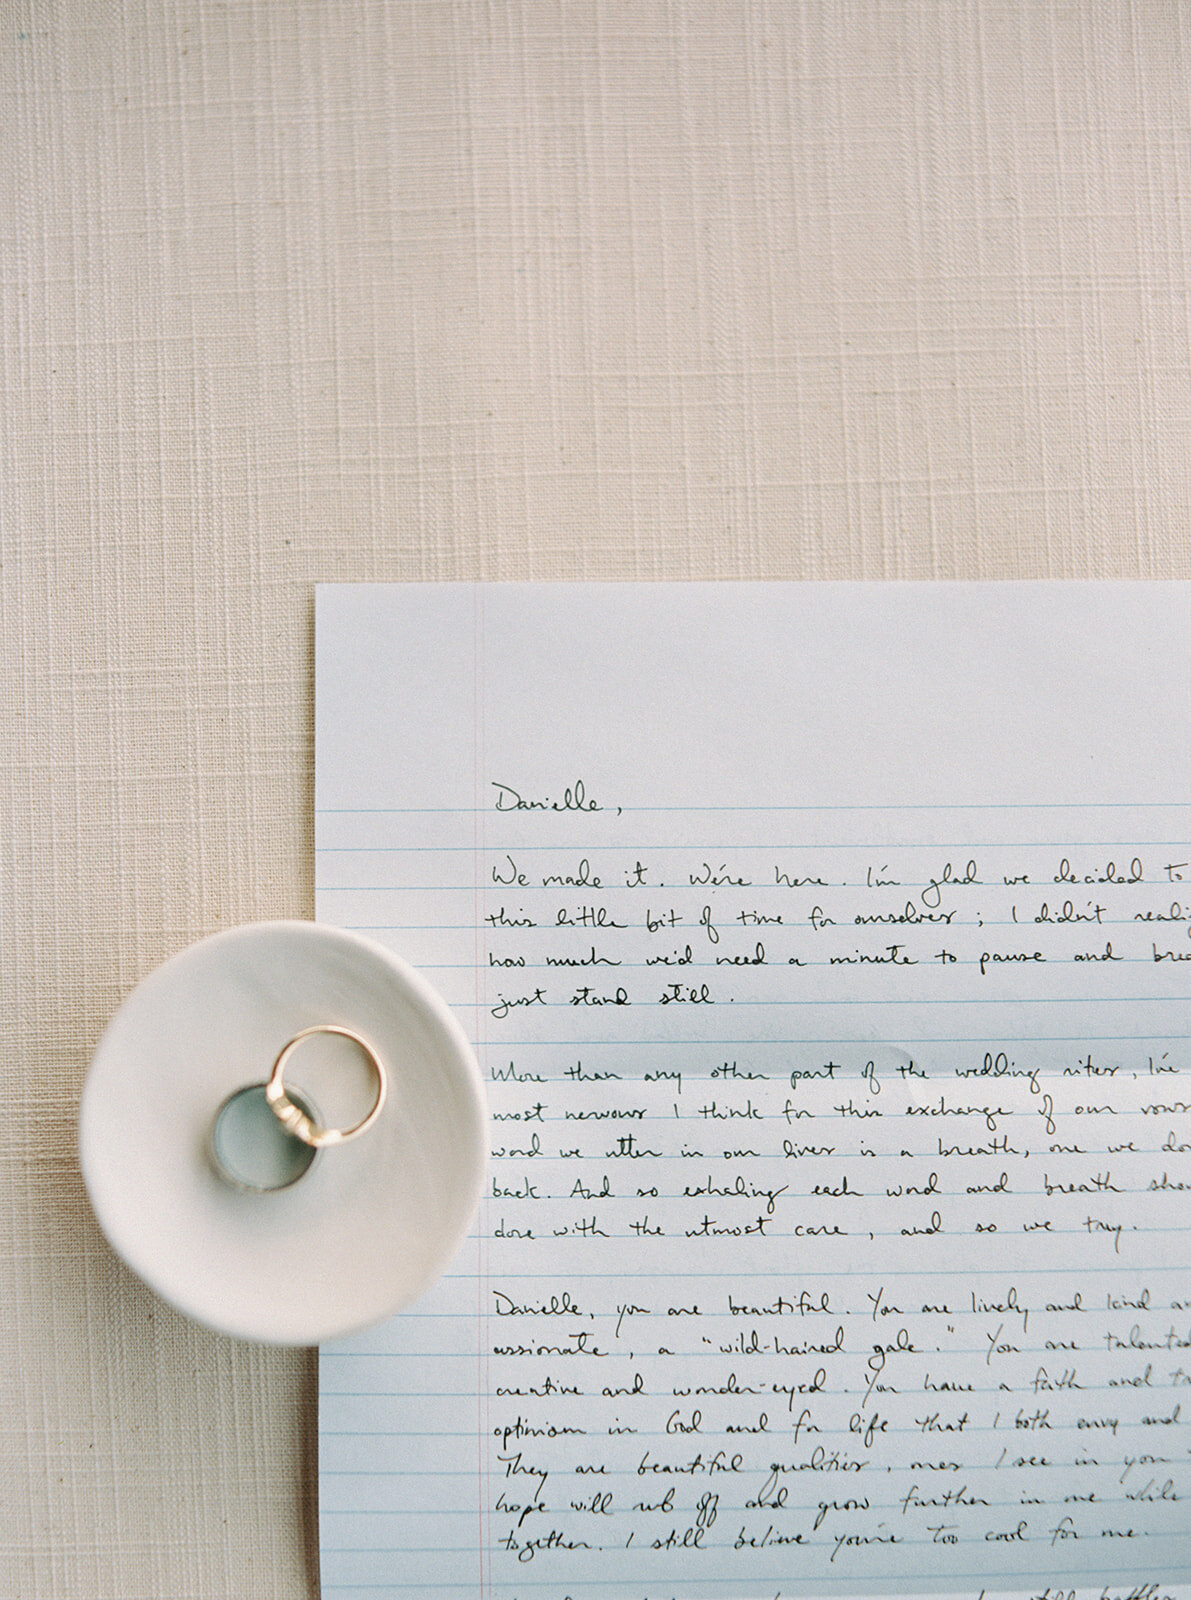 Danielle,
We made it. We're here. I'm glad we decided to
this little bit of time for ourselves; I didn't reali
how much we'd need a minute to pause and brea
just stand still.
More than any other part of the wedding rites, I've
most nervous I think for this exchange of our vows
word we utter in our lives is a breath, one we don
back. And so exhaling each word and breath shou
done with the utmost care, and so we try.
Danielle, you are beautiful. You are lively and kind an
assionate, a "wild-haired gale." You are talented
creative and wonder-eyed. You have a faith and tr
optimism in God and for life that I both envy and
They are beautiful qualities, ones I see in you
hope will rub off and grow further in me while
together. I still believe you're too cool for me.
I still baffles